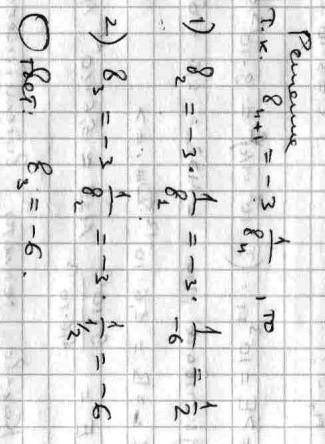 Решение
Т.к. b_{n+1} = -3 \frac{1}{b_n}, то
1) b_2 = -3 \cdot \frac{1}{b_1} = -3 \cdot \frac{1}{-6} = \frac{1}{2}
2) b_3 = -3 \frac{1}{b_2} = -3 \cdot \frac{1}{1/2} = -6
Ответ: b_3 = -6.